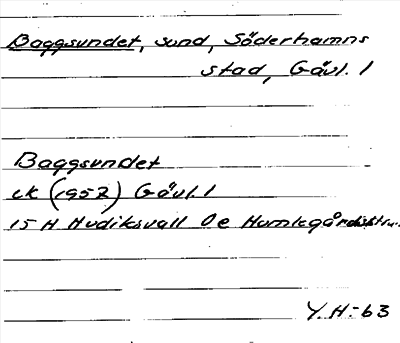 Baggsundet, sund, Söderhamns
stad, Gävl. l
Baggsundet
ek (1952) Gävl. l
15 H Hudiksvall 0e
Y.H-63